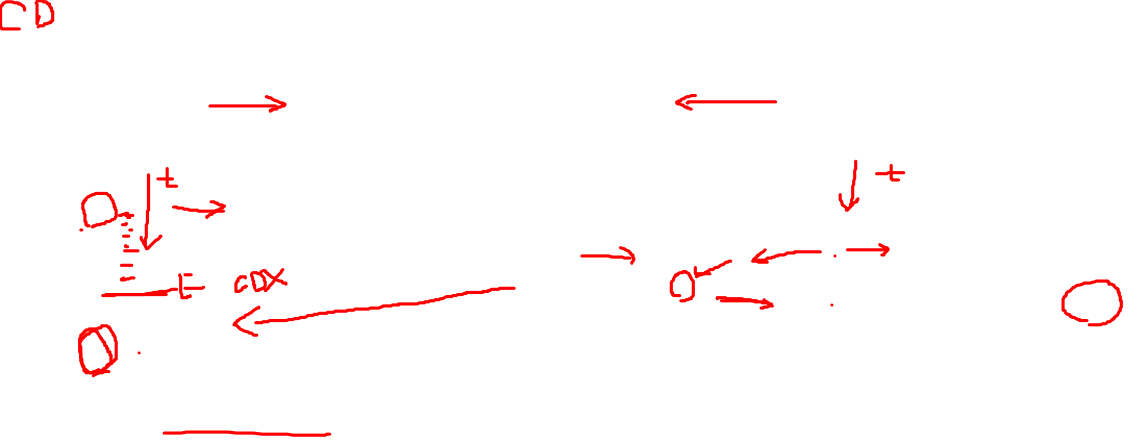 CD
t
t
E CDX